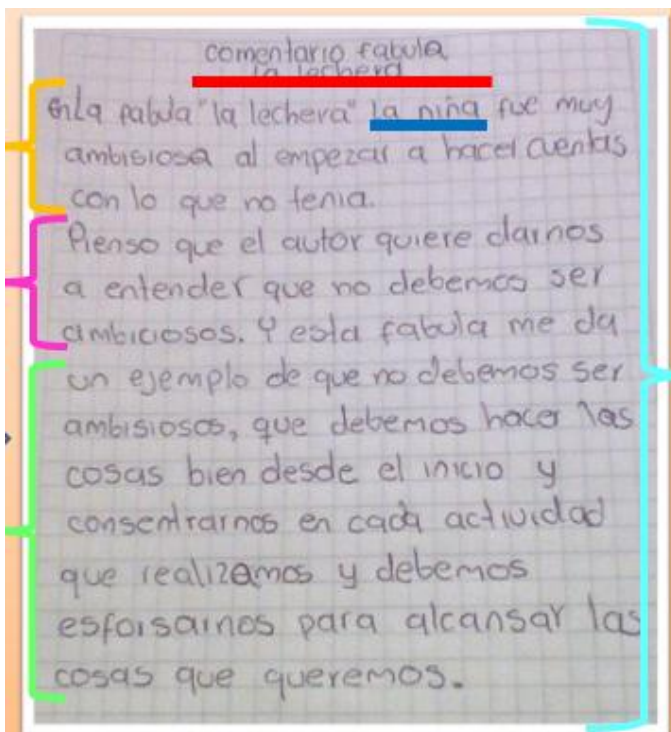 comentario fabula
la lechera
En la fabula "la lechera" la niña fue muy
ambisiosa al empezar a hacer cuentas
con lo que no tenia.
Pienso que el autor quiere darnos
a entender que no debemos ser
ambiciosos. Y esta fabula me da
un ejemplo de que no debemos ser
ambisiosos, que debemos hacer las
cosas bien desde el inicio y
consentrarnos en cada actividad
que realizamos y debemos
esforsarnos para alcansar las
cosas que queremos.